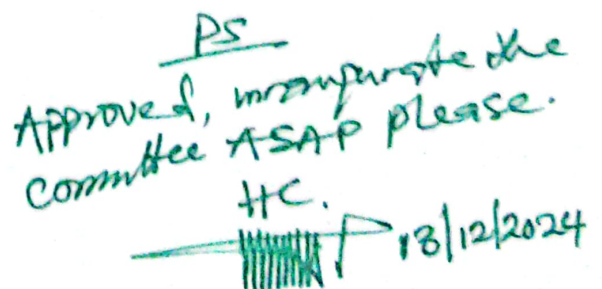 PS
Approved, inaugurate the
committee ASAP please.
HC.
18/12/2024